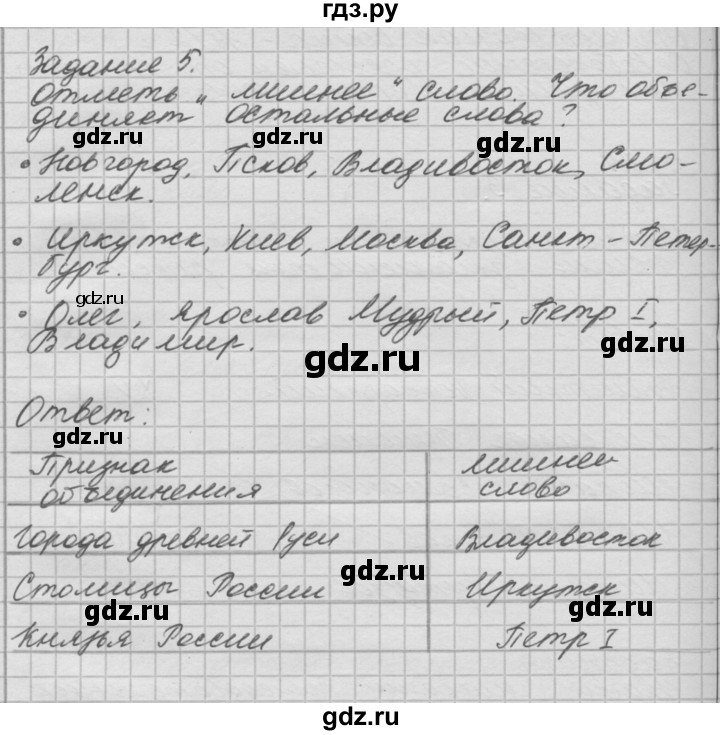 гдз.ру
Задание 5.
Отметь „лишнее“ слово. Что объе-
диняет остальные слова?
gdz.ru
gdz.ru
• Новгород, Псков, Владивосток, Смо-
ленск.
gdz.ru
gdz.ru
• Иркутск, Киев, Москва, Санкт-Петер-
бург.
gdz.ru
• Олег, Ярослав Мудрый, Петр I,
Владимир.
gdz.ru
gdz.ru
Ответ:
gdz.ru
Признак
объединения
лишнее
слово
Города древней Руси Владивосток
gdz.ru
Столицы России Иркутск
gdz.ru
gdz.ru
Князья России Петр I
gdz.ru
gdz.ru